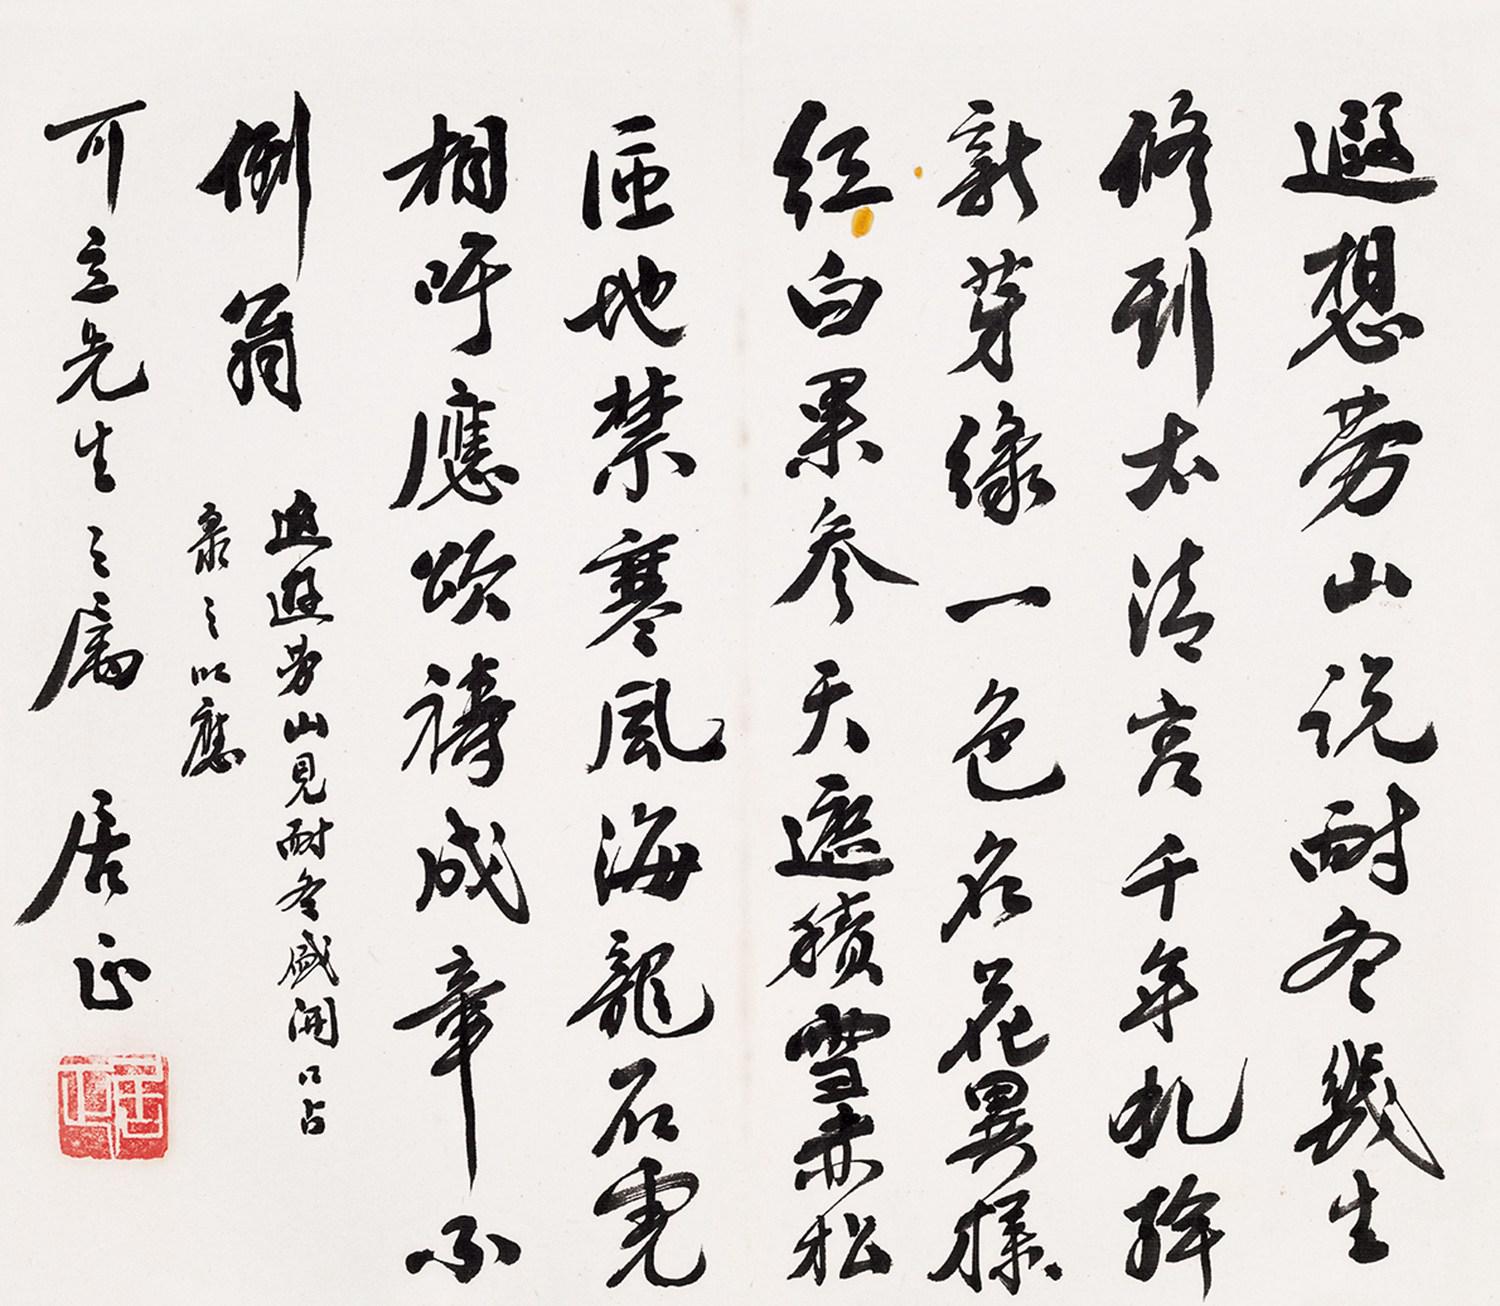 遐想勞山說耐冬幾生
修到太清宮千年虬幹
新芽綠一色名花異樣
紅白果參天遮積雪赤松
匝地禁寒風海龍石虎
相呼應頌禱成章不
倒翁
遊勞山見耐冬盛開口占
之以應
可立先生之屬 居正
居正